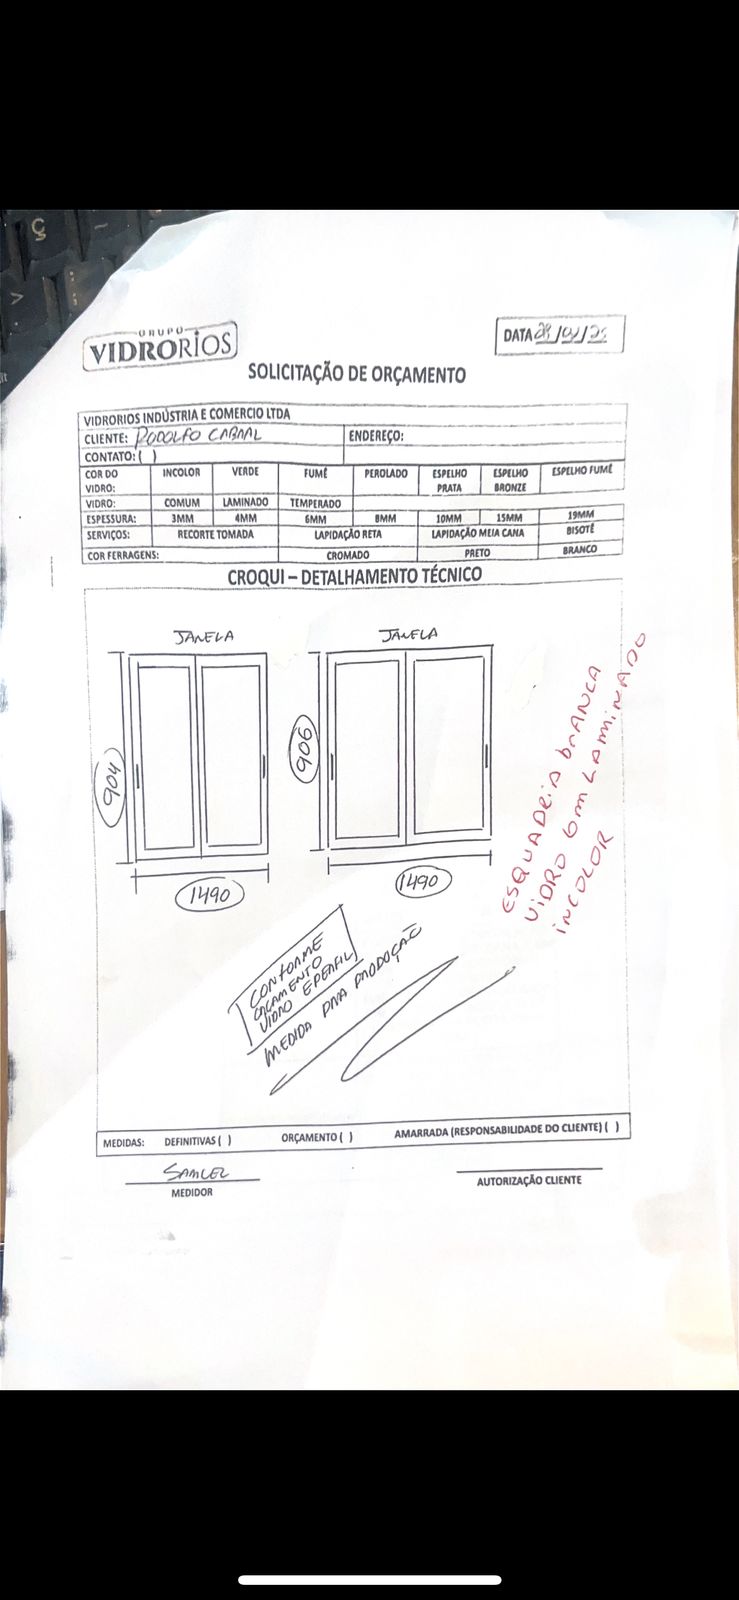 Ç
GRUPO
VIDRORIOS
DATA
SOLICITAÇÃO DE ORÇAMENTO
VIDRORIOS INDÚSTRIA E COMERCIO LTDA
CLIENTE: RODOLFO CABRAL ENDEREÇO:
CONTATO: ( )
COR DO VIDRO: INCOLOR VERDE FUMÊ PEROLADO ESPELHO PRATA ESPELHO BRONZE ESPELHO FUMÊ
VIDRO: COMUM LAMINADO TEMPERADO
ESPESSURA: 3MM 4MM 6MM 8MM 10MM 15MM 19MM
SERVIÇOS: RECORTE TOMADA LAPIDAÇÃO RETA LAPIDAÇÃO MEIA CANA BISOTÊ
COR FERRAGENS: CROMADO PRETO BRANCO
CROQUI – DETALHAMENTO TÉCNICO
JANELA JANELA
904 906
1490 1490
ESQUADRIA brANCA
VIDRO 6mm LAMINADO
INCOLOR
CONFORME
ORÇAMENTO
VIDRO E PERFIL
MEDIDA PRA PRODUÇÃO
MEDIDAS: DEFINITIVAS ( ) ORÇAMENTO ( ) AMARRADA (RESPONSABILIDADE DO CLIENTE) ( )
SAMUEL
MEDIDOR AUTORIZAÇÃO CLIENTE